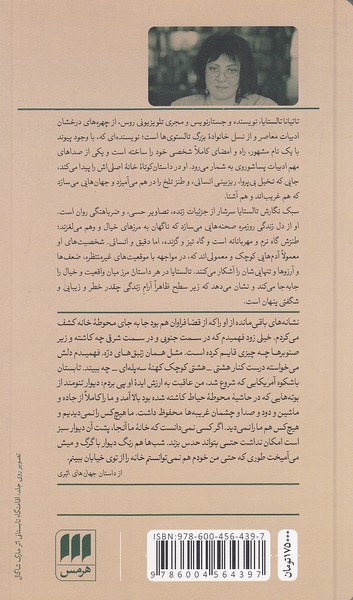 تاتیانا تالستایا، نویسنده و جستارنویس و مجری تلویزیونی روس، از چهره‌های درخشان
ادبیات معاصر و از نسل خانوادهٔ بزرگ تالستوی‌ها است؛ نویسنده‌ای که، با وجود پیوند
با یک نام مشهور، راه و امضای کاملاً شخصی خود را ساخته است و یکی از صداهای
مهم ادبیات پساشوروی به شمار می‌رود. او در داستان کوتاه خانهٔ اصلی‌اش را پیدا می‌کند،
جایی که تخیل بی‌پروا، ریزبینی انسانی، و طنز تلخ را در هم می‌آمیزد و جهان‌هایی می‌سازد
که هم غریب‌اند و هم آشنا.
سبک نگارش تالستایا سرشار از جزئیات زنده، تصاویر حسی، و ضرباهنگی روان است.
او از دل زندگی روزمره صحنه‌هایی می‌سازد که ناگهان به مرزهای خیال و وهم می‌لغزند؛
طنزش گاه نرم و مهربانانه است و گاه تیز و گزنده، اما دقیق و انسانی. شخصیت‌های او
معمولاً آدم‌هایی کوچک و معمولی‌اند که، در مواجهه با موقعیت‌های غیرمنتظره، ضعف‌ها
و آرزوها و تنهایی‌شان را آشکار می‌کنند. تالستایا در هر داستان مرز میان واقعیت و خیال را
جابه‌جا می‌کند و نشان می‌دهد که زیر سطح ظاهراً آرام زندگی چقدر خطر و زیبایی و
شگفتی پنهان است.
نشانه‌های باقی‌مانده از او را که از قضا فراوان هم بود جا به جای محوطهٔ خانه کشف
می‌کردم. خیلی زود فهمیدم که در سمت جنوبی و در سمت شرقی چه کاشته و زیر
صنوبرها چه چیزی قایم کرده است. مثل همان زنبق‌های دره. فهمیدم دلش
می‌خواسته درست کنار هشتی ـ هشتی کوچک کهنهٔ سه‌پله‌ای ـ چه ببیند. تابستان
باشکوه آمریکایی که شروع شد، من عاقبت به ارزش ایدهٔ او پی بردم: دیوار تنومند از
بوته‌هایی که در حاشیهٔ محوطهٔ حیاط کاشته شده بود بالا آمد و ما را کاملاً از جاده و
ماشین و دود و صدا و چشمان غریبه‌ها محفوظ داشت. ما هیچ‌کس را نمی‌دیدیم و
هیچ‌کس هم ما را نمی‌دید. اگر کسی نمی‌دانست که خانهٔ ما آنجا، پشت آن دیوار سبز
است امکان نداشت حتی بتواند حدس بزند. شب‌ها هم رنگ دیوار با گرگ و میش
می‌آمیخت طوری که حتی من خودم هم نمی‌توانستم خانه را از توی خیابان ببینم.
از داستان جهان‌های اثیری
تصویر روی جلد: اقامتگاه تابستانی اثر مارک شاگال
هرمس
ISBN: 978-600-456-439-7
9 786004 564397
۱۷۵۰۰۰ تومان